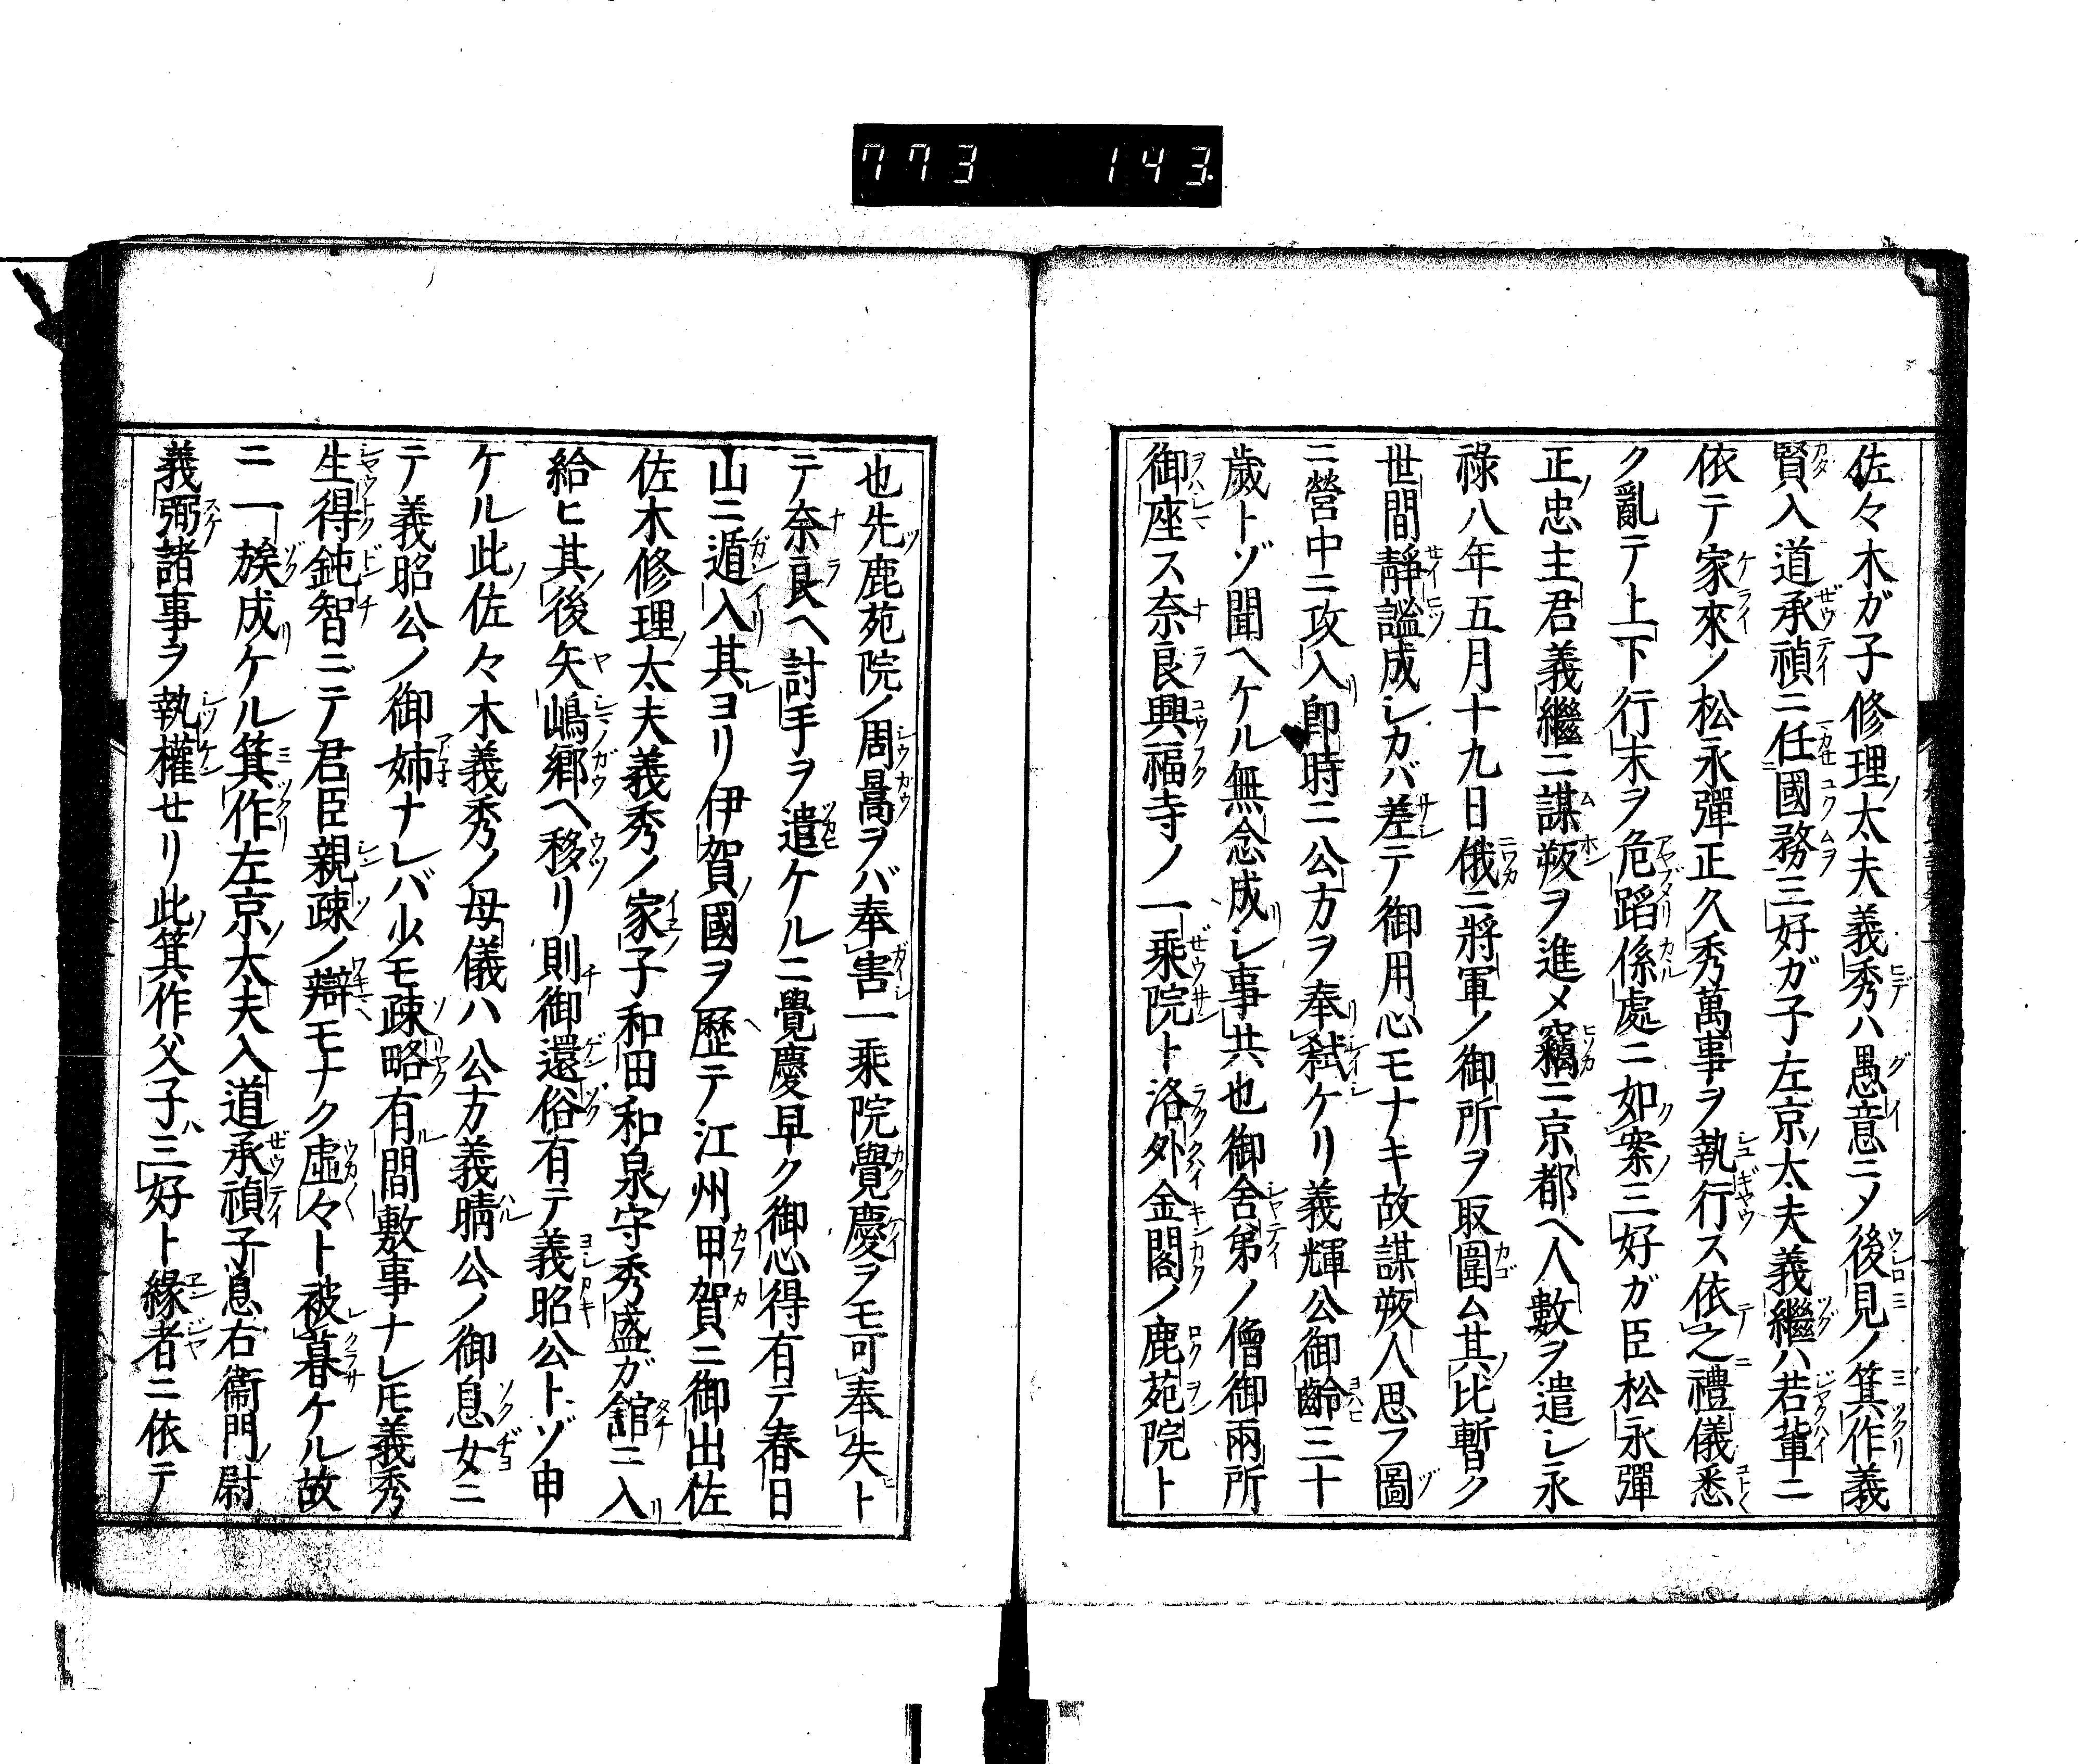 773 143.
佐々木ガ子修理太夫義秀ハ愚意ニメ後見ノ箕作義
賢入道承禎ニ任國務三好ガ子左京太夫義繼ハ若輩ニ
依テ家來ノ松永彈正久秀萬事ヲ執行ス依之禮儀悉
ク亂テ上下行末ヲ危蹈係處ニ如案三好ガ臣松永彈
正忠主君義繼ニ謀叛ヲ進メ竊ニ京都ヘ人數ヲ遣シ永
祿八年五月十九日俄ニ將軍ノ御所ヲ取圍ム其比暫ク
世間靜謐成シカバ差テ御用心モナキ故謀叛人思フ圖
ニ營中ニ攻入即時ニ公方ヲ奉弑ケリ義輝公御齡三十
歲トゾ聞ヘケル無念成シ事共也御舍弟ノ僧御兩所
御座ス奈良興福寺ノ一乘院ト洛外金閣ノ鹿苑院ト
也先鹿苑院ノ周暠ヲバ奉害一乘院覺慶ヲモ可奉失ト
テ奈良ヘ討手ヲ遣ケルニ覺慶早ク御心得有テ春日
山ニ遁入其ヨリ伊賀國ヲ歷テ江州甲賀ニ御出佐
佐木修理太夫義秀ノ家子和田和泉守秀盛ガ舘ニ入
給ヒ其後矢嶋鄉ヘ移リ則御還俗有テ義昭公トゾ申
ケル此佐々木義秀ノ母儀ハ公方義晴公ノ御息女ニ
テ義昭公ノ御姉ナレバ少モ疎略有間敷事ナレ𪜈義秀
生得鈍智ニテ君臣親疎ノ辯モナク虛々ト被暮ケル故
ニ一族成ケル箕作左京太夫入道承禎子息右衞門尉
義弼諸事ヲ執權セリ此箕作父子三好ト緣者ニ依テ